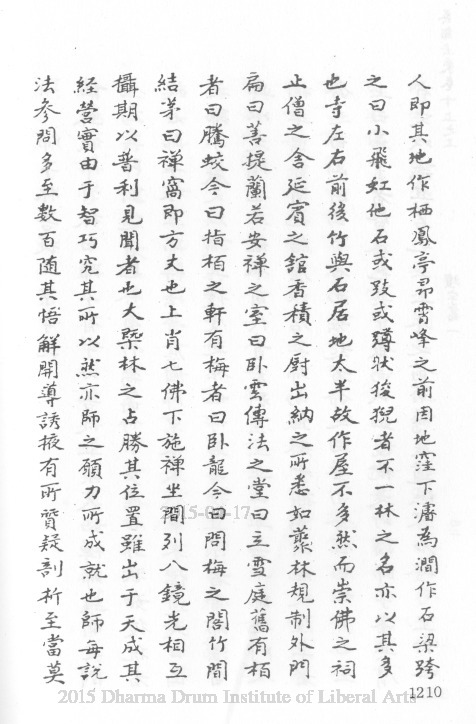 人即其地作栖鳳亭昂霄峰之前因地窪下瀦為澗作石梁跨
之曰小飛虹他石或跂或蹲狀狻猊者不一林之名亦以其多
也寺左右前後竹與石居地太半故作屋不多然而崇佛之祠
止僧之舍延賓之舘香積之厨出納之所悉如叢林規制外門
扁曰菩提蘭若安禪之室曰臥雲傳法之堂曰立雪庭舊有栢
者曰騰蛟今曰指栢之軒有梅者曰臥龍今曰問梅之閣竹間
結茅曰禪窩即方丈也上肖七佛下施禪坐間列八鏡光相互
攝期以普利見聞者也大槩林之占勝其位置雖出于天成其
經營實由于智巧究其所以然亦師之願力所成就也師每說
法參問多至數百隨其悟解開導誘掖有所質疑剖析至當莫
1210
2015 Dharma Drum Institute of Liberal Arts